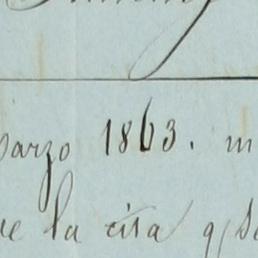 marzo 1863. m
ue la cita q